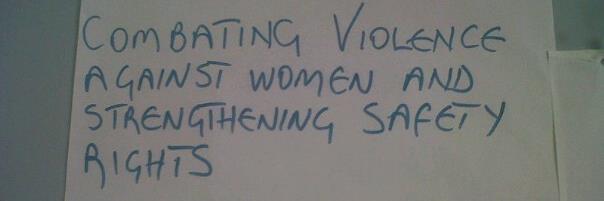 COMBATING VIOLENCE
AGAINST WOMEN AND
STRENGTHENING SAFETY
RIGHTS